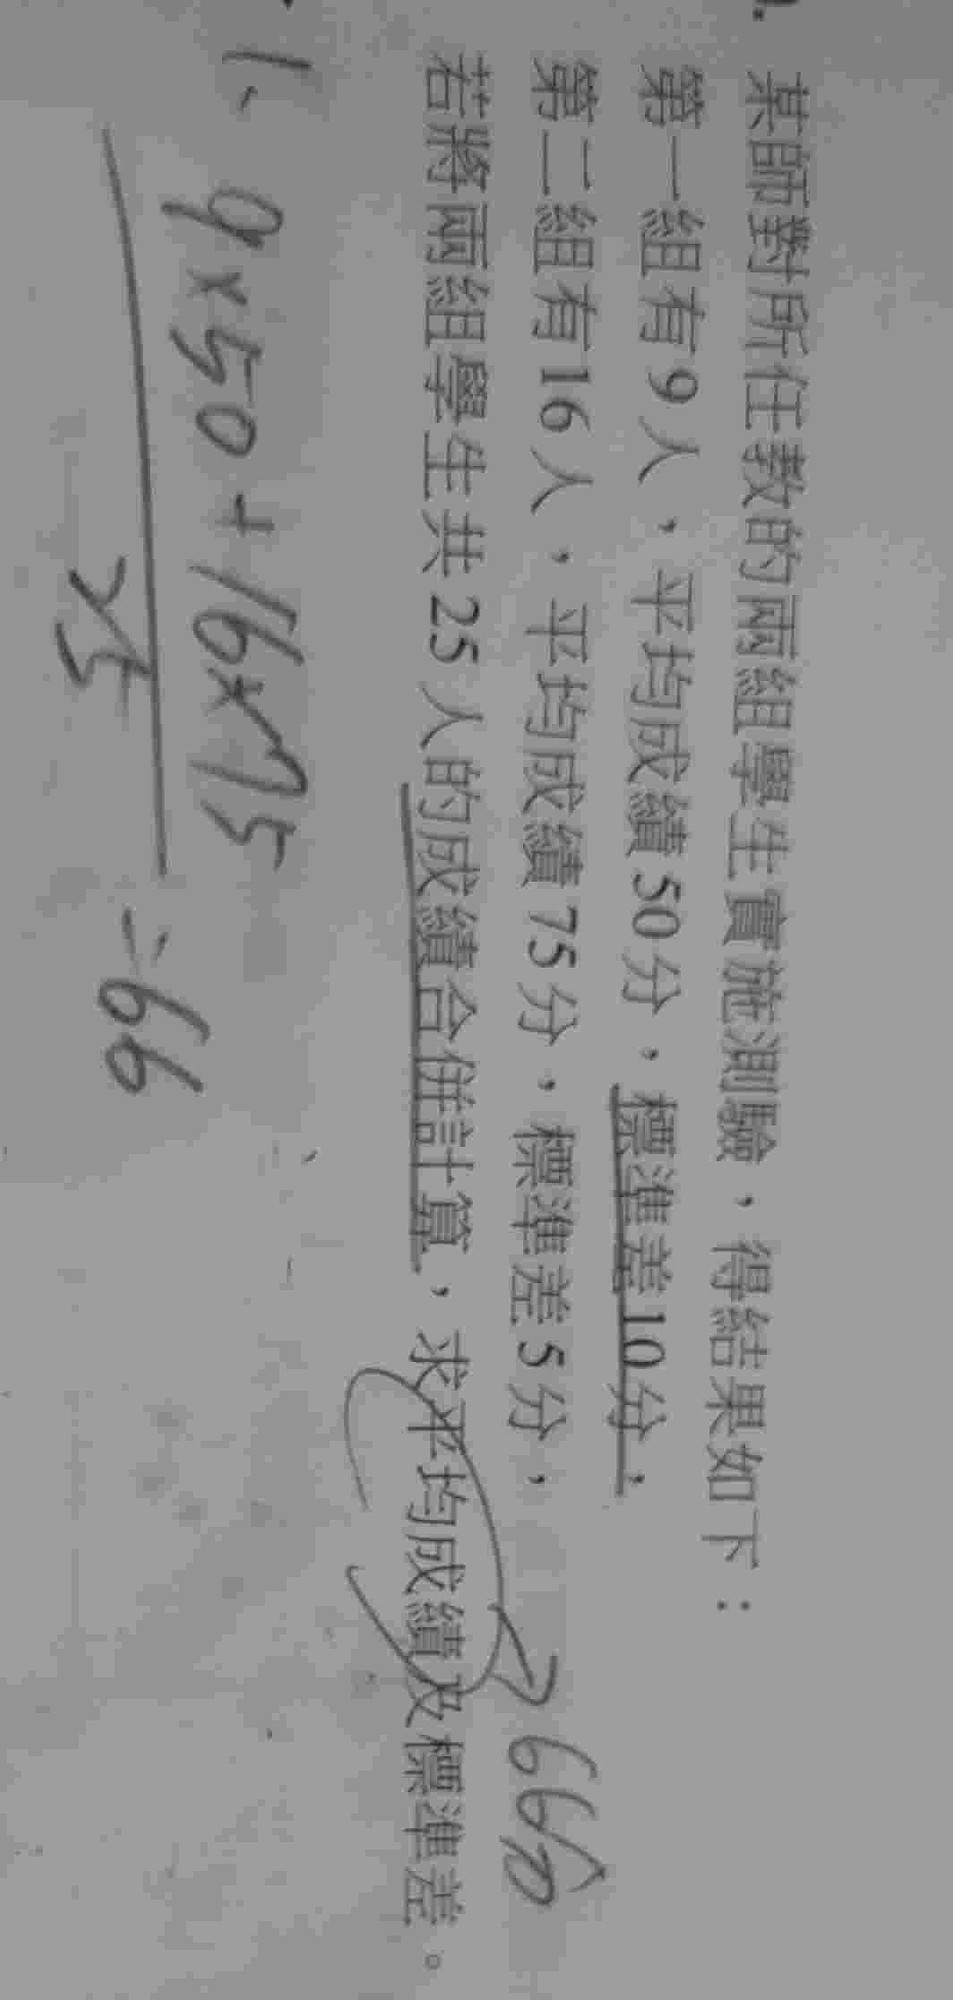 某師對所任教的兩組學生實施測驗，得結果如下：
第一組有9人，平均成績50分，標準差10分，
第二組有16人，平均成績75分，標準差5分，
若將兩組學生共25人的成績合併計算，求平均成績及標準差。
66分
1、 9×50+16×75
25
= 66